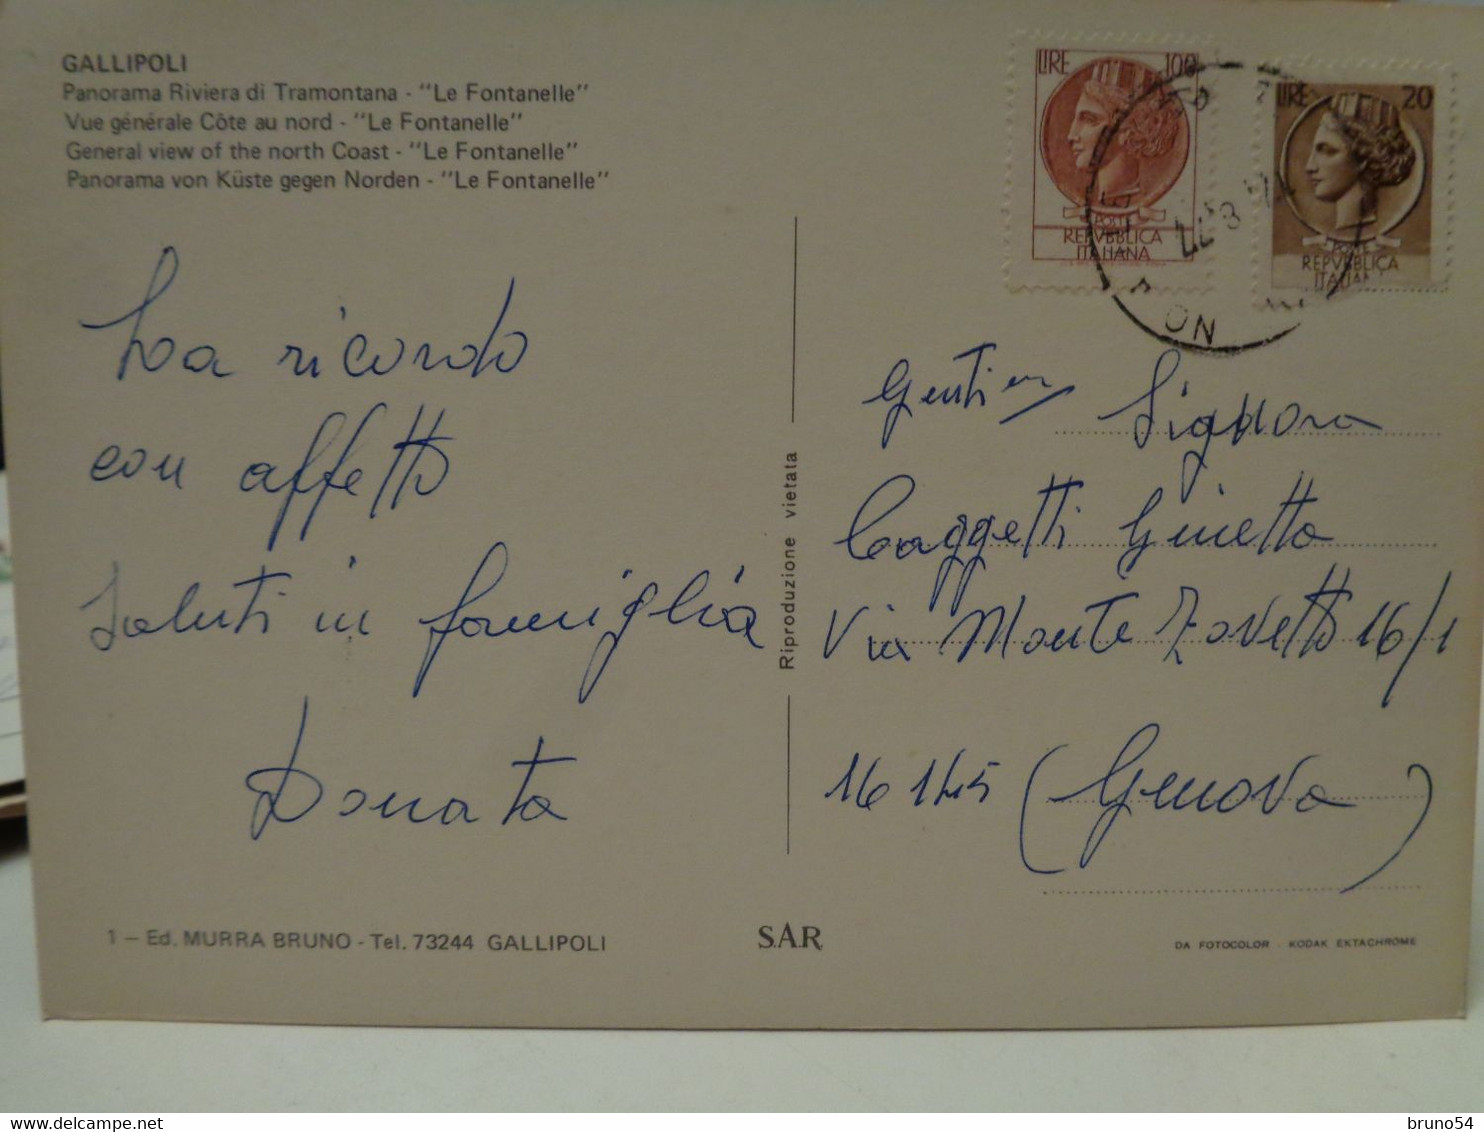 GALLIPOLI
Panorama Riviera di Tramontana - "Le Fontanelle"
Vue générale Côte au nord - "Le Fontanelle"
General view of the north Coast - "Le Fontanelle"
Panorama von Küste gegen Norden - "Le Fontanelle"
LIRE 100
POSTE
REPVBBLICA
ITALIANA
LIRE 20
POSTE
REPVBBLICA
ITALIANA
La ricordo
con affetto
Saluti in famiglia
Donata
Riproduzione vietata
Signora
Caggetti Ginetta
Via Monte Zovetto 16/1
16145 (Genova)
1 - Ed. MURRA BRUNO - Tel. 73244 GALLIPOLI
S.A.R.
DA FOTOCOLOR - KODAK EKTACHROME
bruno54